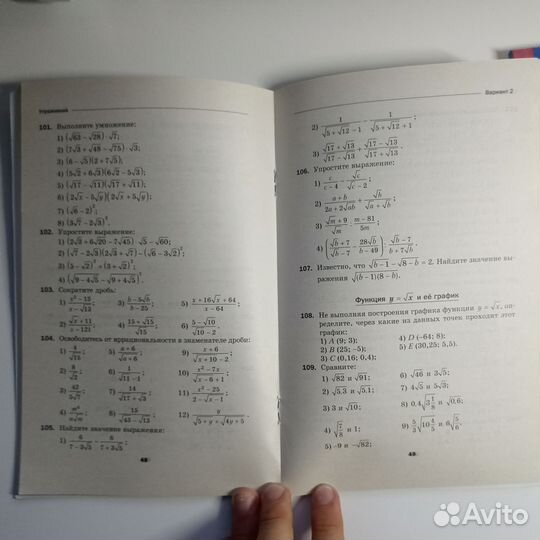 Упражнения
101. Выполните умножение:
1) (√63 − √28) · √7;
2) (7√3 + √48 − √75) · √3;
3) (6 − √5)(2 + 7√5);
4) (5√2 + 6√3)(6√2 − 5√3);
5) (√17 − √11)(√17 + √11);
6) (2√x − 5√y)(2√x + 5√y);
7) (√6 − 2)²;
8) (3√7 − 2√3)².
102. Упростите выражение:
1) (2√3 + 6√20 − 7√45) · √5 − √60;
2) (√7 − 2√3)(2√3 + √7) − (√6 − 3√2)²;
3) (5 − √2)² + (3 + √2)²;
4) (√(9 − 4√5) − √(9 + 4√5))².
103. Сократите дробь:
1) (x² − 13)/(x − √13); 3) (b − 5√b)/(b − 25); 5) (x + 16√x + 64)/(x − 64);
2) (√x + 11)/(x − 121); 4) (15 + √15)/√15; 6) (5 − √10)/(√10 − 2).
104. Освободитесь от иррациональности в знаменателе дроби:
2) 8/√2; 6) 1/(√11 − 1); 10) (x² − 7x)/(√(x − 6) + 1);
3) 42/(5√7); 7) 14/(√17 + √3); 11) (x² − 25)/(2 − √(x − 1));
8) 15/(√43 − √13); 12) y/(√(5 + y) + √(4y + 5)).
105. Найдите значение выражения:
1) 6/(7 − 3√5) − 6/(7 + 3√5);
48
Вариант 2
2) 1/(√(5 + √12) − 1) − 1/(√(5 + √12) + 1);
3) (√17 + √13)/(√17 − √13) + (√17 − √13)/(√17 + √13).
106. Упростите выражение:
1) c/(c − 4) − √c/(√c − 2);
2) (a + b)/(2a + 2√ab) + √b/(√a + √b);
3) (√m + 9)/√m − (m − 81)/5m;
4) ((√b + 7)/(√b − 7) − 28√b/(b − 49)) : (√b − 7)/(b + 7√b).
107. Известно, что √(b − 1) − √(8 − b) = 2. Найдите значение вы-
ражения √((b − 1)(8 − b)).
Функция y = √x и её график
108. Не выполняя построения графика функции y = √x, оп-
ределите, через какие из данных точек проходит этот
график:
1) A (9; 3); 4) D (−64; 8);
2) B (25; −5); 5) E (30,25; 5,5).
3) C (0,16; 0,4);
109. Сравните:
1) √82 и √91; 6) √46 и 3√5;
2) √5,3 и √5,1; 7) 4√5 и 5√3;
3) 3 и √10; 8) 0,4√(3 1/8) и √0,6;
4) √(7/8) и 1;
5) −9 и −√82;
49
Avito